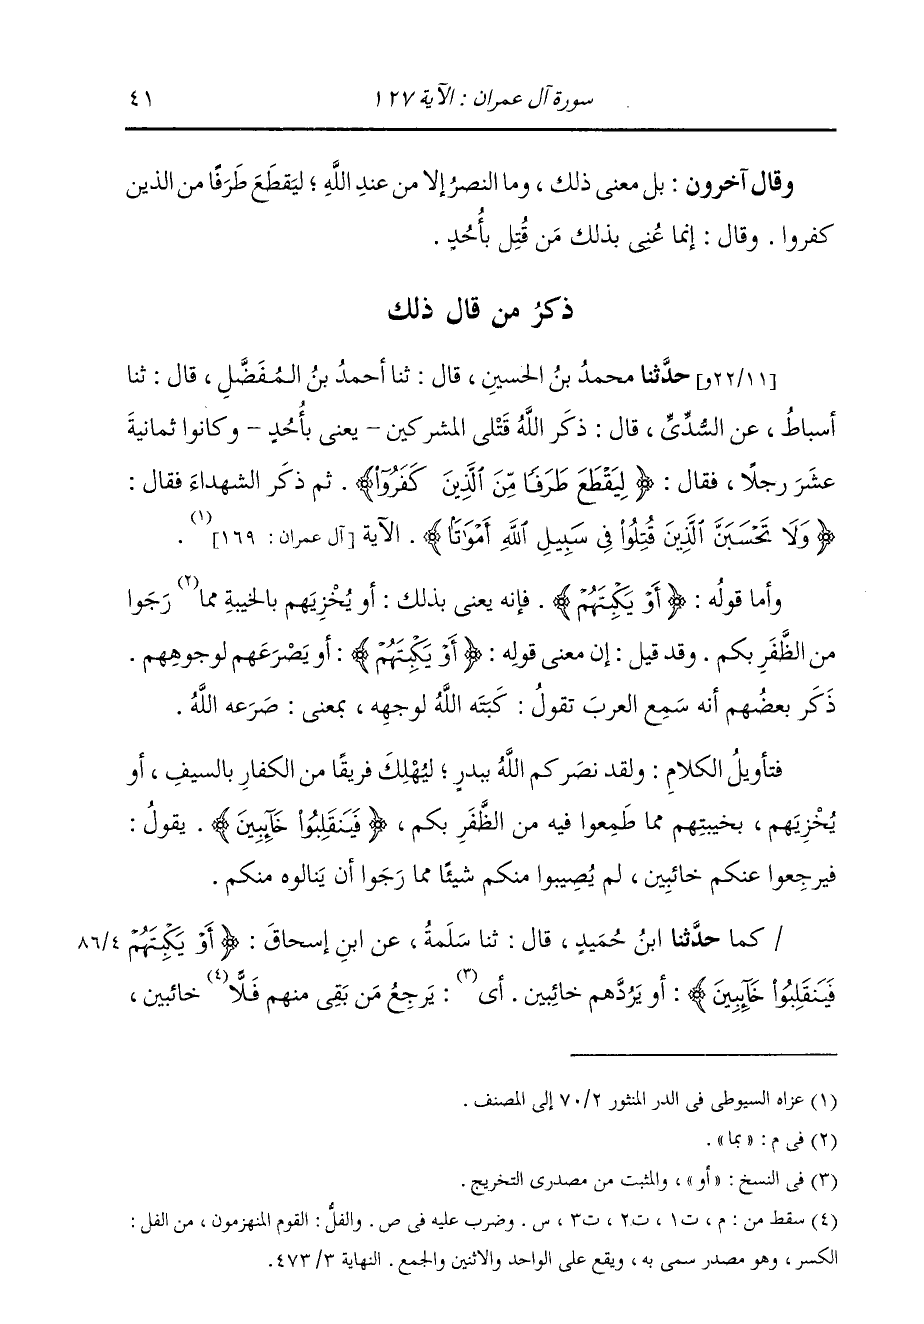 سورة آل عمران : الآية ١٢٧ ٤١
وقال آخرون : بل معنى ذلك ، وما النصرُ إلا من عندِ اللَّهِ ؛ ليَقطَعَ طَرَفًا من الذين
كفروا . وقال : إنما عُنِى بذلك مَن قُتِل بأُحُدٍ .
ذكرُ من قال ذلك
[٢٢/١١و] حدَّثنا محمدُ بنُ الحسينِ ، قال : ثنا أحمدُ بنُ المُفَضَّلِ ، قال : ثنا
أسباطُ ، عن السُّدِّىِّ ، قال : ذكَر اللَّهُ قَتْلى المشركين - يعنى بأُحُدٍ - وكانوا ثمانيةَ
عشَرَ رجلًا ، فقال : ﴿ لِيَقْطَعَ طَرَفًا مِّنَ ٱلَّذِينَ كَفَرُوٓا۟ ﴾ . ثم ذكَر الشهداءَ فقال :
﴿ وَلَا تَحْسَبَنَّ ٱلَّذِينَ قُتِلُوا۟ فِى سَبِيلِ ٱللَّهِ أَمْوَٰتًا ﴾ . الآية [آل عمران : ١٦٩] (١) .
وأما قولُه : ﴿ أَوْ يَكْبِتَهُمْ ﴾ . فإنه يعنى بذلك : أو يُخْزِيَهم بالخيبةِ مما (٢) رَجَوا
من الظَّفَرِ بكم . وقد قيل : إن معنى قولِه : ﴿ أَوْ يَكْبِتَهُمْ ﴾ : أو يَصْرَعَهم لوجوهِهم .
ذَكَر بعضُهم أنه سَمِع العربَ تقولُ : كَبَتَه اللَّهُ لوجهِه ، بمعنى : صَرَعه اللَّهُ .
فتأويلُ الكلامِ : ولقد نصَركم اللَّهُ ببدرٍ ؛ ليُهْلِكَ فريقًا من الكفارِ بالسيفِ ، أو
يُخْزِيَهم ، بخيبتِهم مما طَمِعوا فيه من الظَّفَرِ بكم ، ﴿ فَيَنقَلِبُوا۟ خَآئِبِينَ ﴾ . يقولُ :
فيرجِعوا عنكم خائبِين ، لم يُصِيبوا منكم شيئًا مما رَجَوا أن يَنالوه منكم .
/ كما حدَّثنا ابنُ حُمَيدٍ ، قال : ثنا سَلَمةُ ، عن ابنِ إسحاقَ : ﴿ أَوْ يَكْبِتَهُمْ ٨٦/٤
فَيَنقَلِبُوا۟ خَآئِبِينَ ﴾ : أو يَرُدَّهم خائِبين . أى (٣) : يَرجِعُ مَن بَقِى منهم فَلًّا (٤) خائبين ،
(١) عزاه السيوطى فى الدر المنثور ٧٠/٢ إلى المصنف .
(٢) فى م : « بما » .
(٣) فى النسخ : « أو » ، والمثبت من مصدرى التخريج .
(٤) سقط من : م ، ت١ ، ت٢ ، ت٣ ، س . وضرب عليه فى ص . والفلُّ : القوم المنهزمون ، من الفل :
الكسر ، وهو مصدر سمى به ، ويقع على الواحد والاثنين والجمع . النهاية ٤٧٣/٣ .